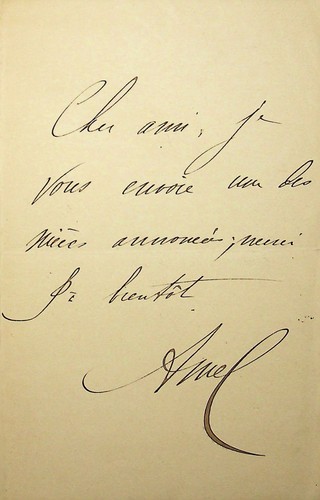 Cher ami, je
vous envoie une des
pièces annoncées; merci
A bientôt
Amel